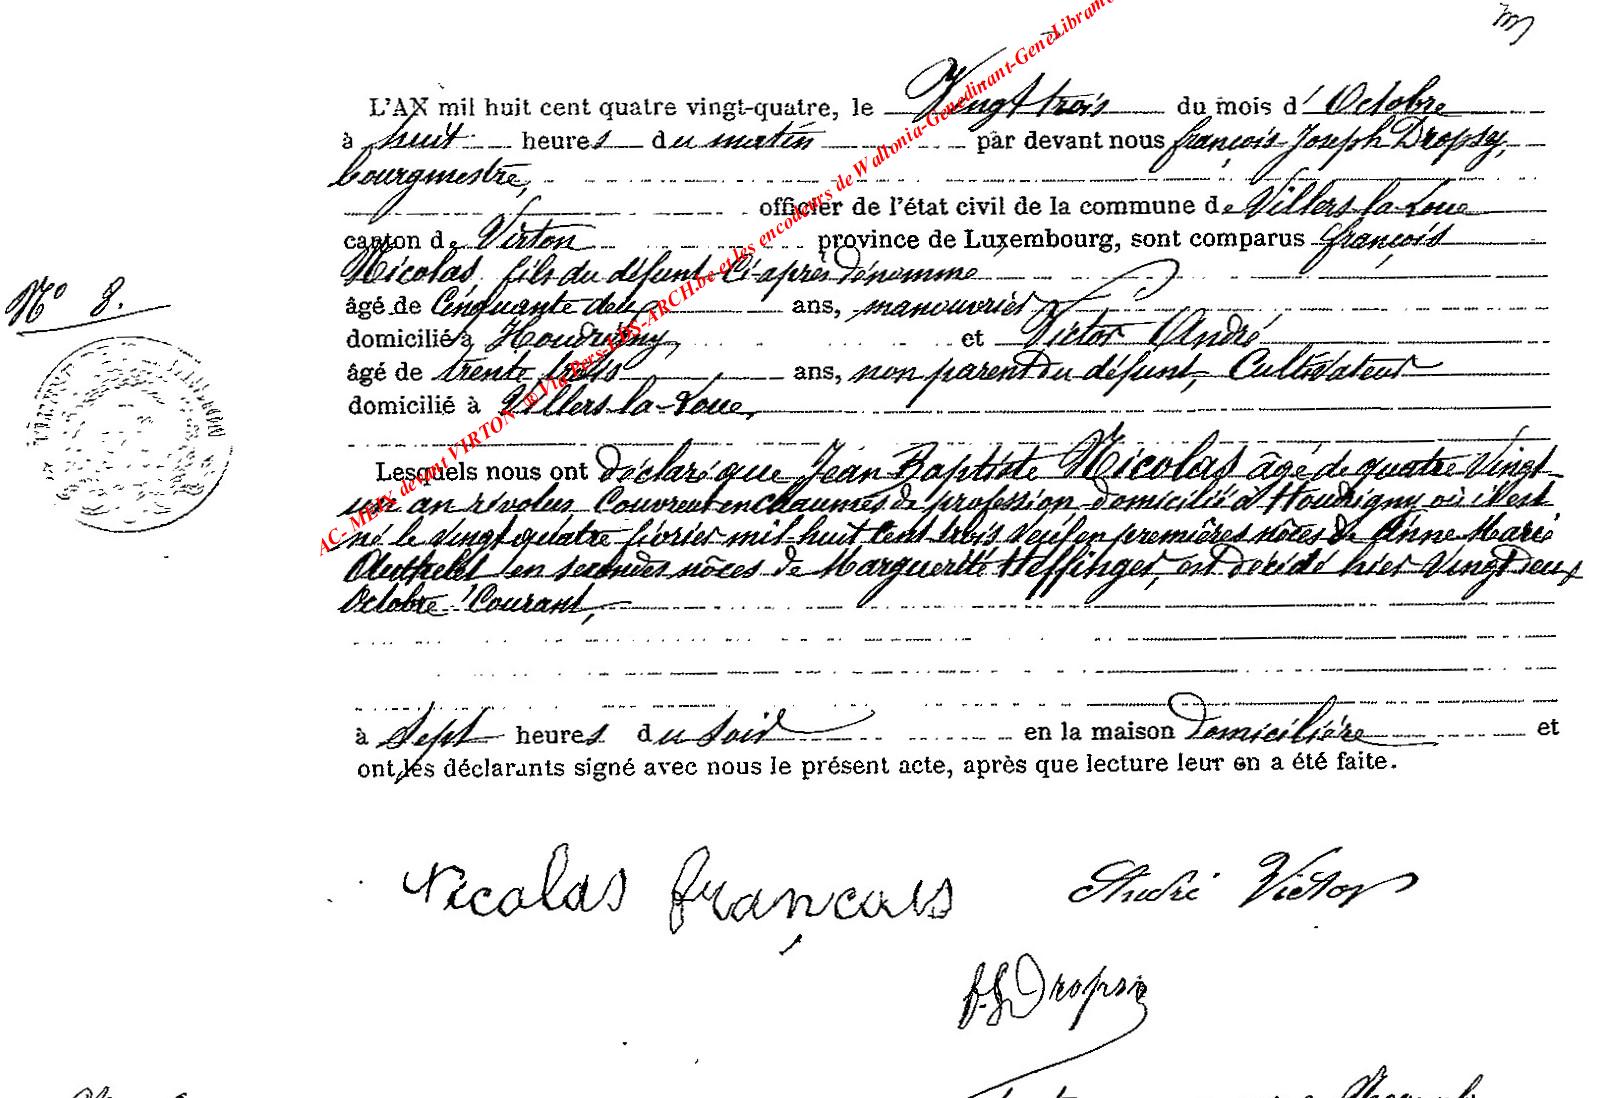 L'AN mil huit cent quatre vingt-quatre, le Vingt trois du mois d' Octobre
à huit heures du matin par devant nous françois Joseph Dropsy,
bourgmestre,
officier de l'état civil de la commune de Villers la-Loue
canton de Virton province de Luxembourg, sont comparus françois
Nicolas, fils du défunt Ci-après dénommé
N° 8.
âgé de Cinquante deux ans, manouvrier
domicilié à Houdrigny, et Victor André
âgé de trente trois ans, non parent du défunt, Cultivateur
domicilié à Villers la-Loue,
Lesquels nous ont déclaré que Jean Baptiste Nicolas âgé de quatre Vingt
un an révolus Couvreur en chaumes de profession domicilié à Houdrigny où il est
né le vingt quatre février mil huit Cent trois Veuf en premières nôces de Anne Marie
Authelet en secondes nôces de Marguerite Heffinger, est décédé hier Vingt deux
Octobre Courant,
à Sept heures du soir en la maison Domicilière et
ont les déclarants signé avec nous le présent acte, après que lecture leur en a été faite.
Nicolas françois André Victor
f. J Dropsy
AC- MEIX devant VIRTON ® Via Pers-EDS-ARCH.be et les encodeurs de Wallonia-Genedinant-GeneLibramo